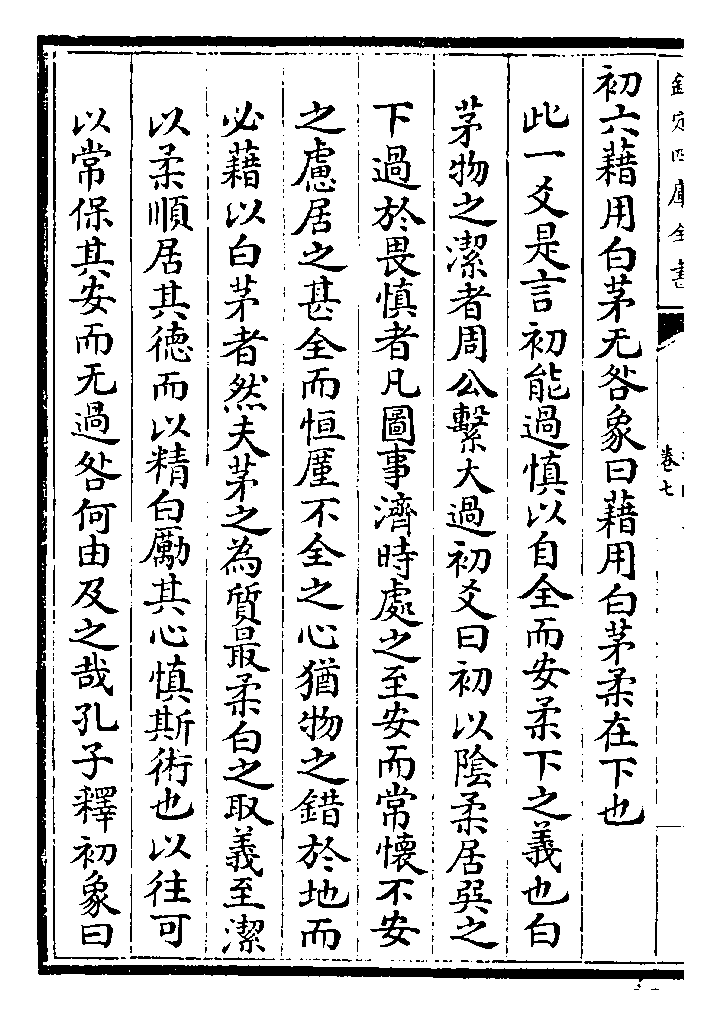 欽定四庫全書
卷七
初六藉用白茅无咎象曰藉用白茅柔在下也
此一爻是言初能過慎以自全而安柔下之義也白
茅物之潔者周公繫大過初爻曰初以陰柔居巽之
下過於畏慎者凡圖事濟時處之至安而常懷不安
之慮居之甚全而恒厪不全之心猶物之錯於地而
必藉以白茅者然夫茅之為質最柔白之取義至潔
以柔順居其德而以精白勵其心慎斯術也以往可
以常保其安而无過咎何由及之哉孔子釋初象曰